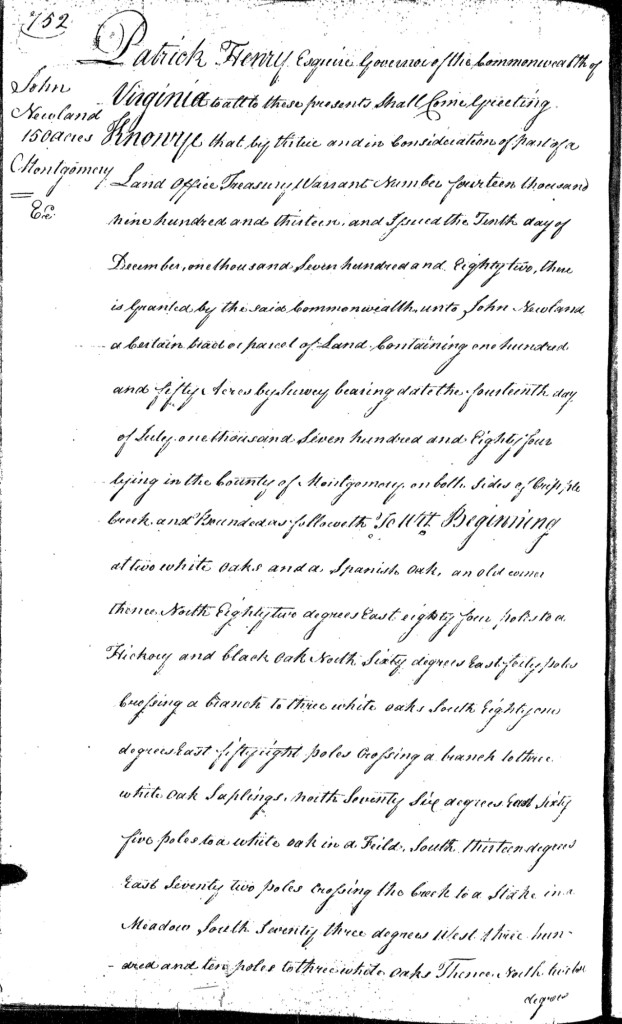 752
John
Newland
150 acres
Montgomery
Patrick Henry Esquire Governor of the Commonwealth of
Virginia to all to these presents Shall Come Greeting
Know ye that by Virtue and in Consideration of part of a
Land Office Treasury Warrant Number fourteen thousand
nine hundred and thirteen, and Issued the Tenth day of
December, one thousand Seven hundred and Eighty two, there
is Granted by the said Commonwealth, unto John Newland
a Certain tract or parcel of Land Containing one hundred
and fifty Acres by Survey bearing date the fourteenth day
of July one thousand Seven hundred and Eighty four
lying in the County of Montgomery on both Sides of Cripple
Creek and Bounded as followeth To Wit Beginning
at two white oaks and a Spanish Oak, an old corner
thence North Eighty two degrees East eighty four poles to a
Hickory and black oak North Sixty degrees East forty poles
Crossing a branch to three white oaks South Eighty one
degrees East fifty eight poles Crossing a branch to three
white oak Saplings, north Seventy Six degrees East Sixty
five poles to a white oak in a Feild, South thirteen degrees
East Seventy two poles Crossing the Creek to a Stake in a
Meadow South Seventy three degrees West three hun-
-dred and ten poles to three white oaks Thence North twelve
degrees